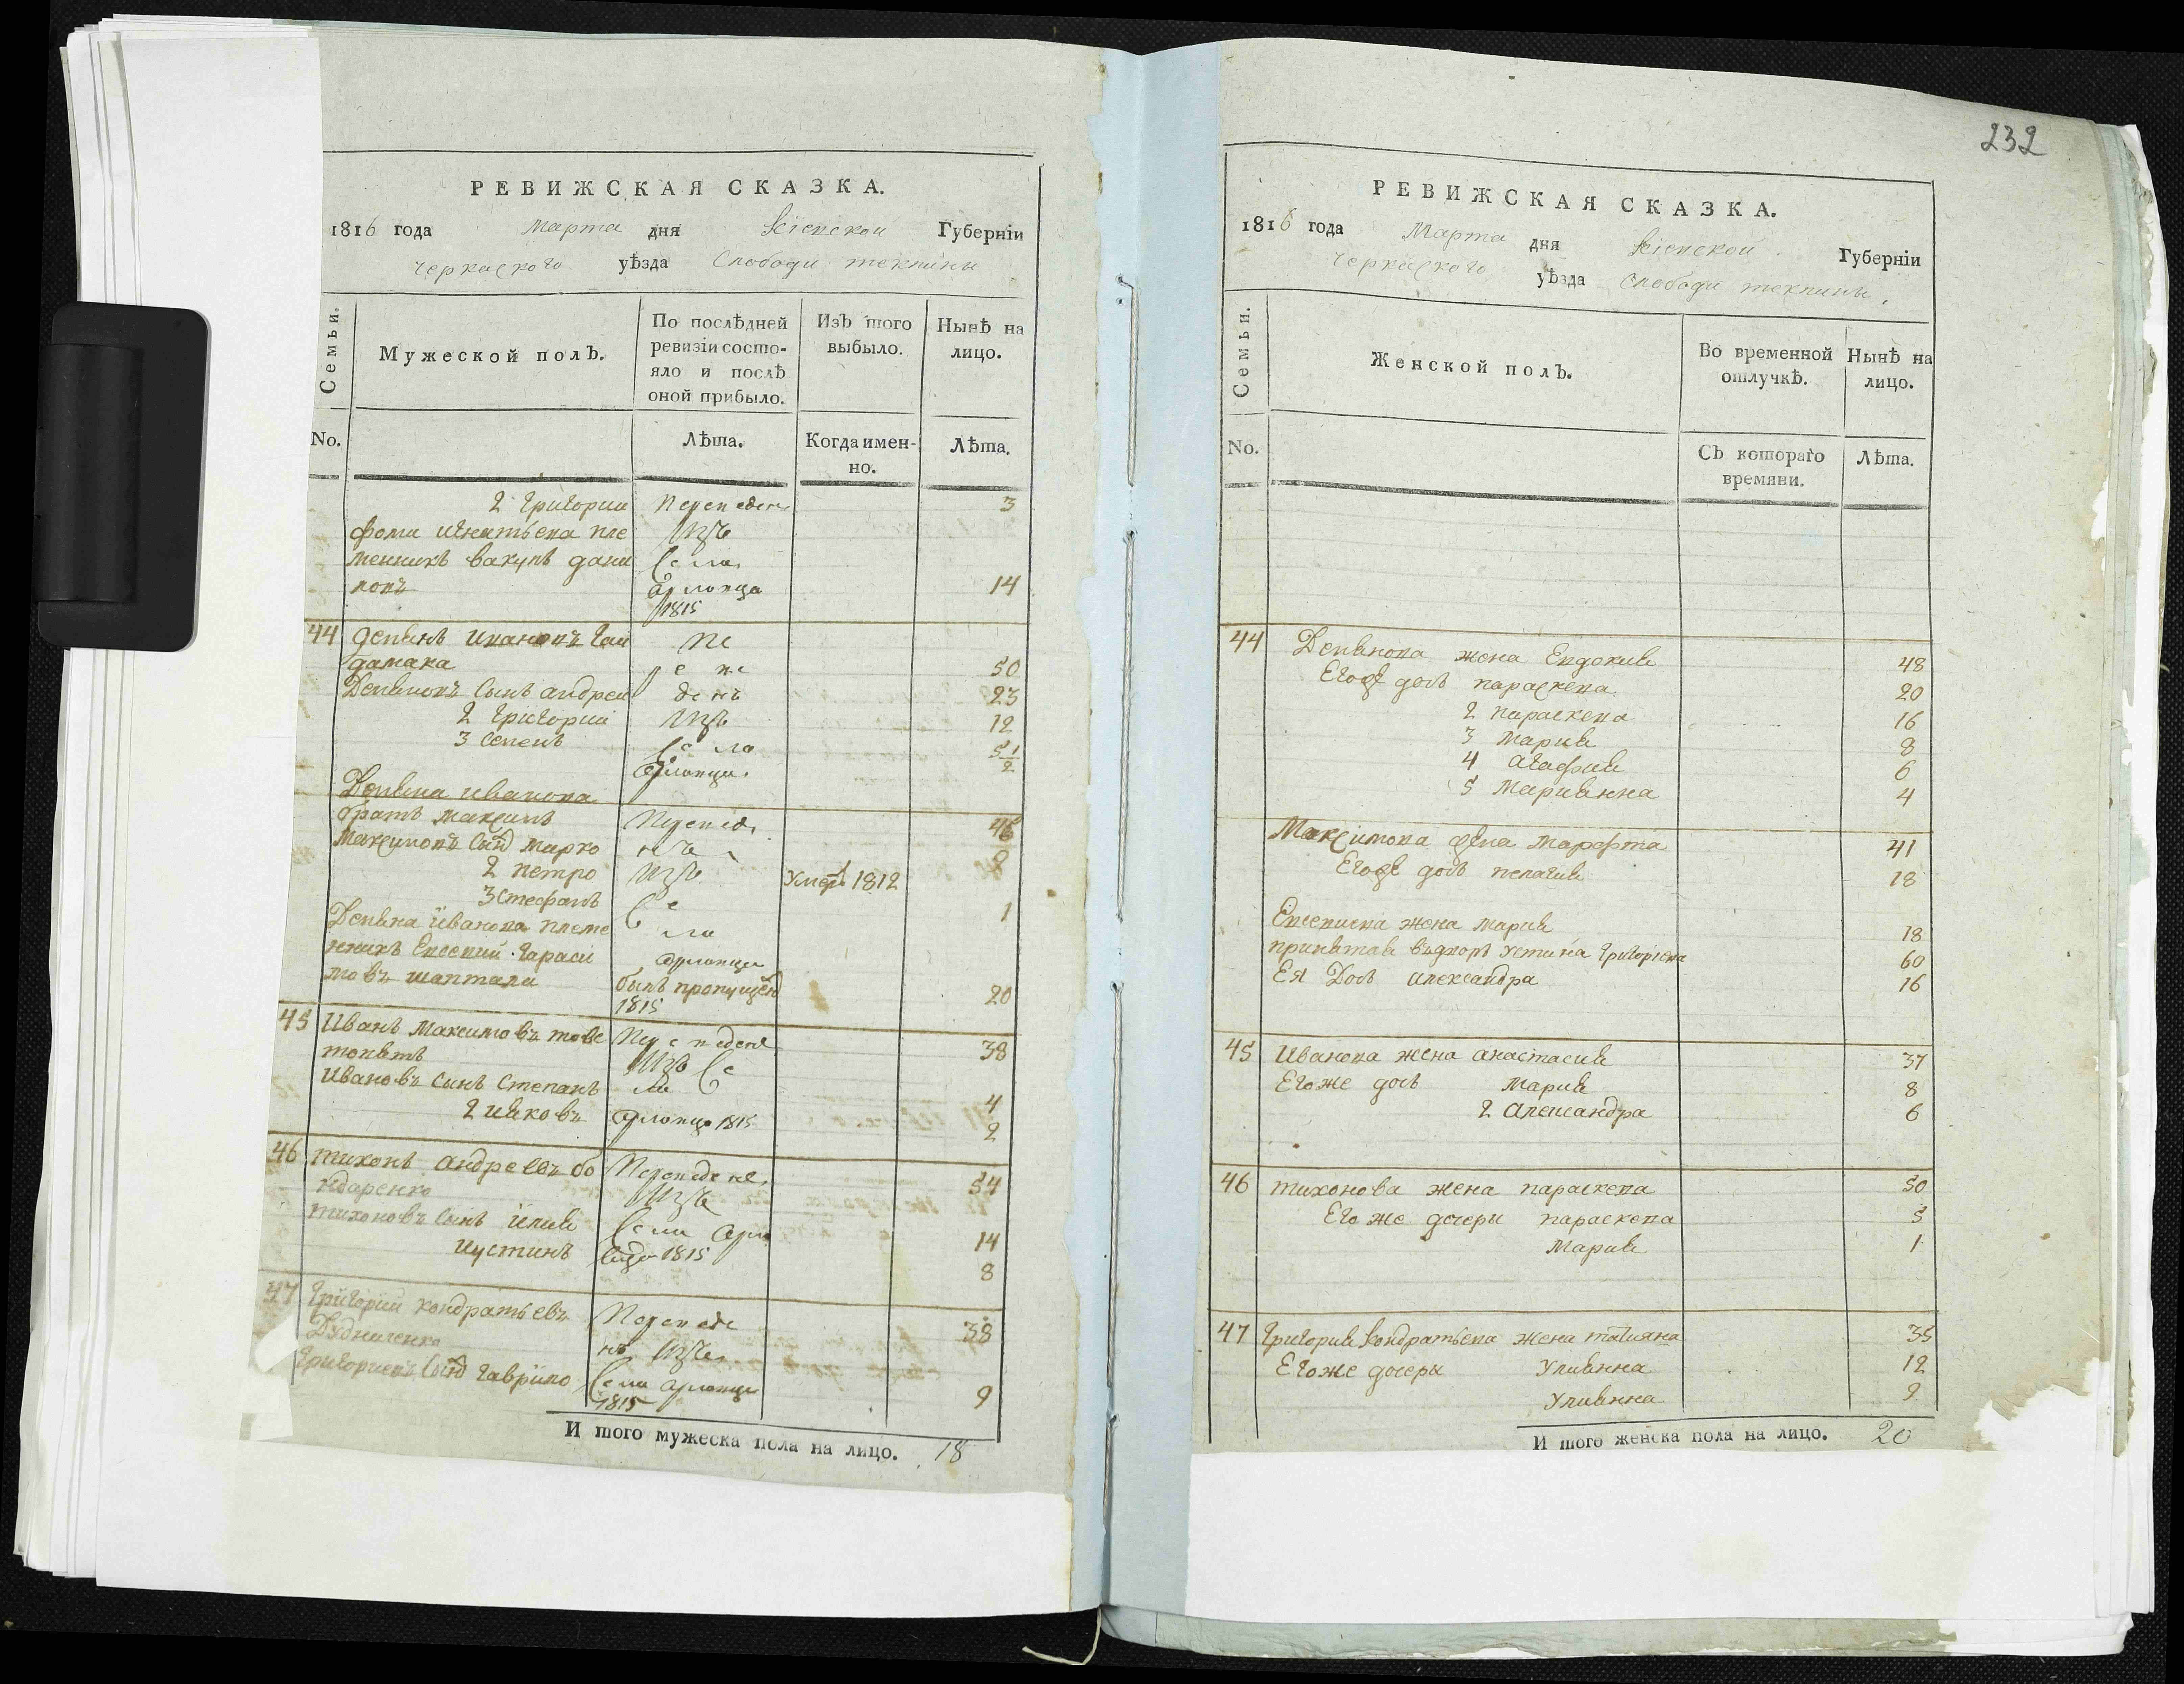 РЕВИЖСКАЯ СКАЗКА.
1816 года Марта дня Кіевской Губерніи
Черкаского уѣзда Слободи теклины
Семьи.
Мужеской полЪ.
По послѣдней ревизіи состо-
яло и послѣ оной прибыло.
ИзЪ того выбыло.
Нынѣ на лицо.
No.
Лѣта.
Когда имен-
но.
Лѣта.
2 Григории Переведенъ 3
фоми игнатьева пле Изъ
менникъ вакулъ дани Села
ловъ 14
1815
44 Демянъ ивановъ гаи Пе
дамака ре ве 50
Демяновъ Сынъ андреи денъ 23
2 Григорий Изъ 12
3 Семенъ Се ла 5 1/2
Демяна иванова
братъ максимъ Переведе 46
Максимовъ Сынъ марко нъ 8
2 петро Изъ Умеръ 1812
3 стефанъ Се 1
Демяна иванова племе ла
нникъ Евсевий гараси
мовъ шаптала былъ пропущенъ 20
1815
45 Иванъ Максимовъ Переведенъ 38
Изъ Се
Ивановъ Сынъ Степанъ ла 4
2 ияковъ 1815 2
46 тихонъ андреевъ бо Переведенъ 54
ндаренко Изъ
тихоновъ Сынъ илия Села 14
иустинъ 1815 8
47 Григории кондратьевъ Переведе 38
Дудниченко нъ Изъ
Григориевъ Сынъ гаврило Села 9
1815
И того мужеска пола на лицо. 18
232
РЕВИЖСКАЯ СКАЗКА.
1816 года Марта дня Кіевской Губерніи
Черкаского уѣзда Слободи теклины.
Семьи.
Женской полЪ.
Во временной отлучкѣ.
Нынѣ на лицо.
No.
СЪ котораго времяни.
Лѣта.
44 Демянова жена Евдокия 48
Егоже дочь параскева 20
2 параскева 16
3 Мария 8
4 агафия 6
5 Марианна 4
Максимова жена Марфта 41
Егоже дочь пелагия 18
Евсевиева жена мария 18
принятая въдворъ устина Григориева 60
Ея Дочь александра 16
45 Иванова жена анастасия 37
Егоже дочь Мария 8
2 Александра 6
46 тихонова жена параскева 50
Его же дочеры параскева 5
Мария 1
47 Григория Кондратьева жена татияна 35
Егоже дочеры Улиянна 12
Улиянна 9
И того женска пола на лицо. 20